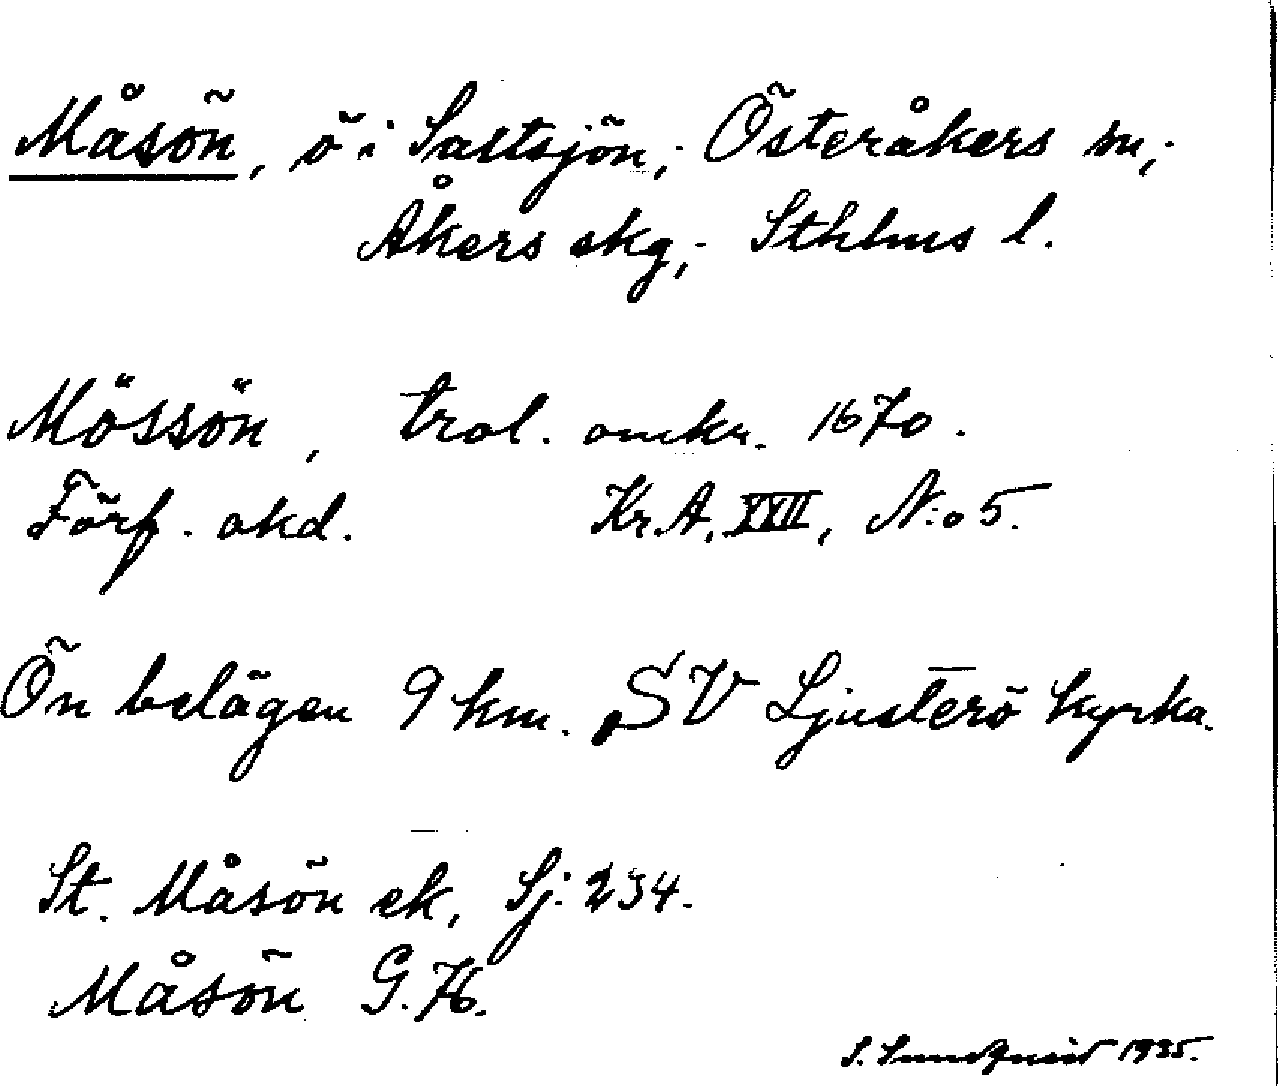 Måsön, ö i Saltsjön, Österåkers sn,
Åkers skg, Sthlms l.
Mössön, trol. omkr. 1670.
Förf. okd. Kr.A. XXII, N:o 5.
Ön belägen 9 km. SV Ljusterö kyrka.
St. Måsön ek, Sj: 234.
Måsön G. 76.
S. Sundquist 1935.